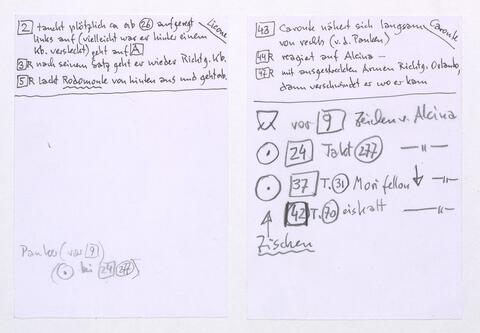 Licone
2 taucht plötzlich ca ab 26 aufgeregt
links auf (vielleicht war er hinter einem
Kb. versteckt) geht auf A
3R nach seinem Satz geht er wieder Richtg. Kb.
5R lacht Rodomonte von hinten aus und geht ab.
Pauken (vor 9)
(⊙ bei 24 277)
Caronte
43 Caronte nähert sich langsam
von rechts (v. d. Pauken)
44R reagiert auf Alcina –
47R mit ausgestreckten Armen Richtg. Orlando,
dann verschwindet er wo er kam
vor 9 Zeichen v. Alcina
⊙ 24 Takt 277 —"—
⊙ 37 T. 31 Mori fellon ↓ —"—
↑ 42 T. 70 eiskalt —"—
Zischen